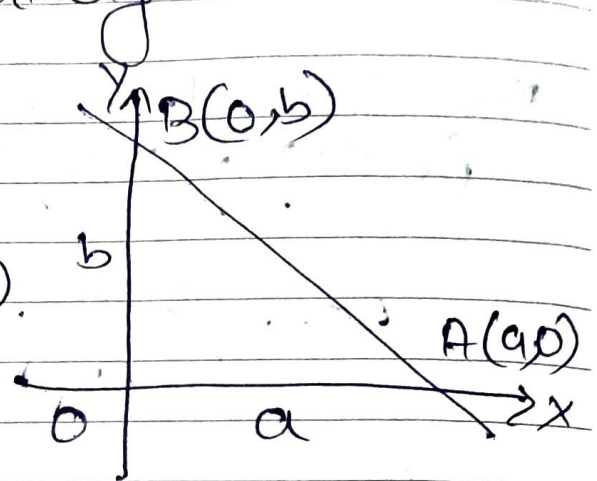 y
Y B(0,b)
b
)
A(a,0)
O a X